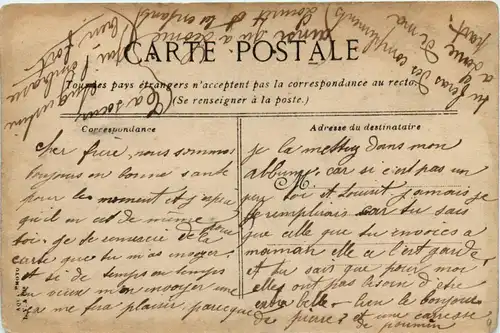 CARTE POSTALE
Tous les pays étrangers n'acceptent pas la correspondance au recto
(Se renseigner à la poste.)
Correspondance
Cher frère, nous sommes
toujours en bonne santé
pour les moment et j'espère
qu'il en est de même
toi. Je te remercie de la
carte que tu m'as envoyer
et si de temps en temps
tu veux m'en envoyer une
ça me fera plaisir, parce que
Adresse du destinataire
je la mettrez dans mon
album, car si c'est pas un
peu toi et Louise jamais je
le remplirais car tu sais
que celle que tu envoies à
maman elle a l'est garde
et tu sais que pour moi
elles ont pas besoin d'être
extra belle - bien le bonjour
de pierre et une caresse
tu feras des compliments
de ma
part
a
ainsi qu'a
et les enfants
ta sœur
qui t'embrasse
bien fort